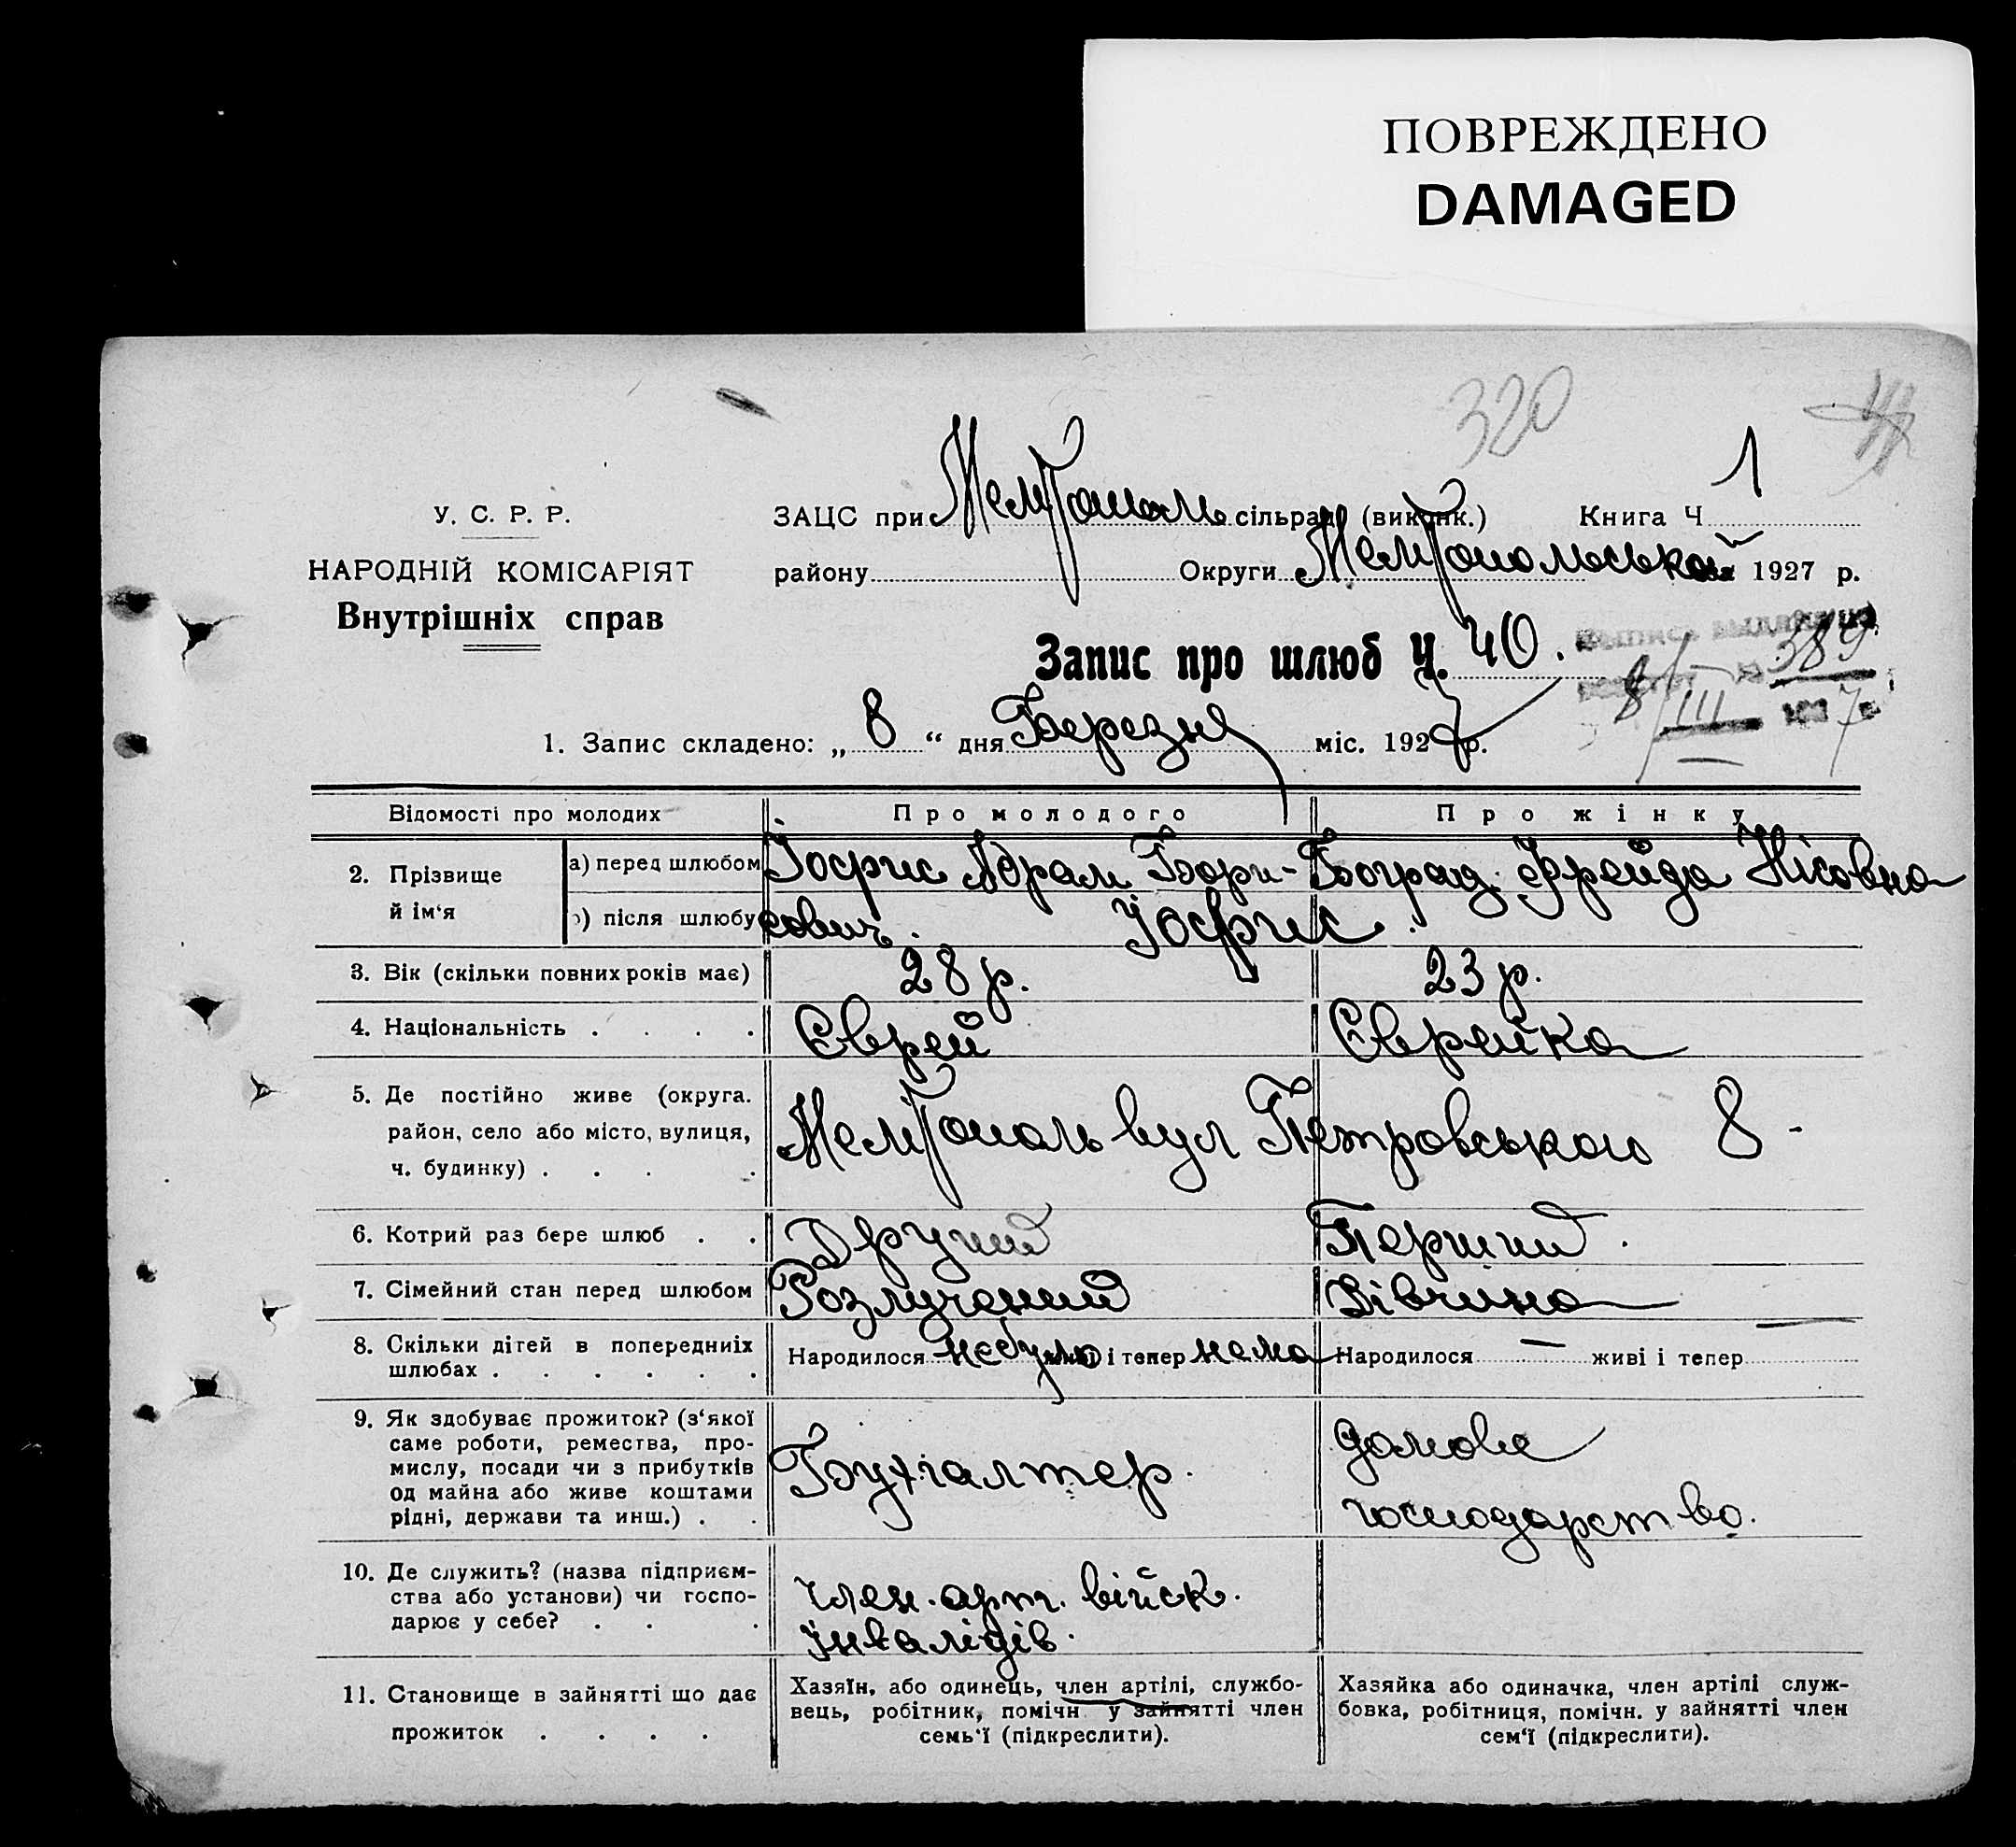 ПОВРЕЖДЕНО
DAMAGED
320
У. С. Р. Р.
НАРОДНІЙ КОМІСАРІЯТ
Внутрішніх справ
ЗАЦС при Мелітополь сільраді (виконк.) Книга Ч. 1
району Округи Мелітопольской за 1927 р.
Запис про шлюб Ч. 40.
389
8/III 1927 г.
1. Запис складено: „ 8 “ дня Березня міс. 1927 р.
Відомості про молодих Про молодого Про жінку
2. Прізвище й ім‘я
а) перед шлюбом Іосфис Абрам Бори- Боград Фрейда Нісовна
б) після шлюбу сович. Іосфис.
3. Вік (скільки повних років має) 28 р. 23 р.
4. Національність . . . . Єврей Єврейка
5. Де постійно живе (округа.
район, село або місто, вулиця,
ч. будинку) . . . . Мелітополь вул Петровського 8 -
6. Котрий раз бере шлюб . . Другий Перший.
7. Сімейний стан перед шлюбом Розлучений Дівчина
8. Скільки дітей в попередниіх
шлюбах . . . . . . Народилося небуло живі і тепер нема Народилося — живі і тепер —
9. Як здобуває прожиток? (з‘якої
саме роботи, ремества, про-
мислу, посади чи з прибутків
од майна або живе коштами
рідні, держави та инш.) . . Бухгалтер. домове
господарство.
10. Де служить? (назва підприєм-
ства або установи) чи госпо-
дарює у себе? . . . член. арт. війск.
інвалідів.
11. Становище в зайнятті що дає
прожиток . . . .
Хазяїн, або одинець, член артілі, службо-
вець, робітник, помічн. у зайнятті член
семь‘ї (підкреслити).
Хазяйка або одиначка, член артілі служ-
бовка, робітниця, помічн. у зайнятті член
сем‘ї (підкреслити).